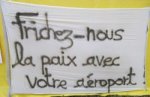 Frichez-nous
la paix avec
votre aéroport !